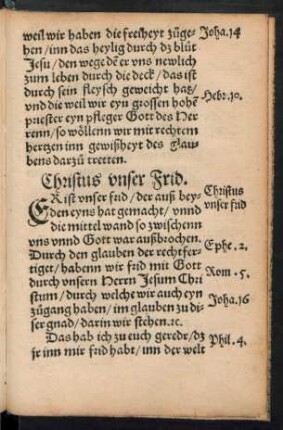 weil wir haben die freiheyt züge- Joha.14
hen/inn das heylig durch dz blüt
Jesu/den wege dē er vns newlich
zum leben durch die deck/das ist
durch sein fleysch geweicht hat/ Hebr.10.
vnd die weil wir eyn grossen hohē
priester eyn pfleger Gott des Her
renn/so wöllenn wir mit rechtem
hertzen inn gewißheyt des Glau-
bens darzü tretten.
Christus vnser Frid.
ER ist vnser frid/der auß bey- Christus
den eyns hat gemacht/vnnd vnser frid
die mittel wand so zwischenn
vns vnnd Gott war außbrochen. Ephe.2.
Durch den glauben der rechtfer-
tiget/habenn wir frid mit Gott Rom.5.
durch vnsern Herrn Jesum Chri
stum/durch welche wir auch eyn Joha.16
zügang haben/im glauben zü di-
ser gnad/darin wir stehen.ꝛc.
Das hab ich zu euch geredt/dz Phil.4.
jr inn mir frid habt/inn der welt